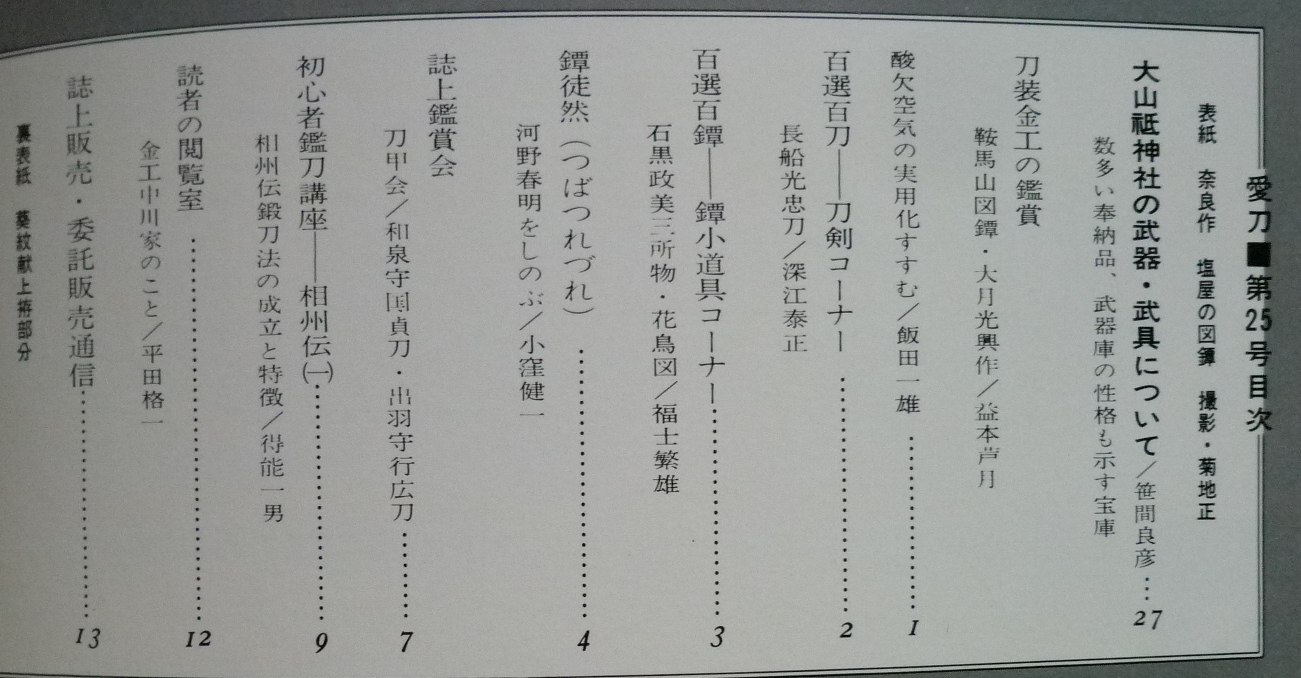 愛刀■第25号目次
表紙 奈良作 塩屋の図鐔 撮影・菊地正
大山祗神社の武器・武具について/笹間良彦……27
数多い奉納品、武器庫の性格も示す宝庫
刀装金工の鑑賞
鞍馬山図鐔・大月光興作/益本芦月
酸欠空気の実用化すすむ/飯田一雄……1
百選百刀――刀剣コーナー……2
長船光忠刀/深江泰正
百選百鐔――鐔小道具コーナー……3
石黒政美三所物・花鳥図/福士繁雄
鐔徒然(つばつれづれ)……4
河野春明をしのぶ/小窪健一
誌上鑑賞会
刀甲会/和泉守国貞刀・出羽守行広刀……7
初心者鑑刀講座――相州伝㈠……9
相州伝鍛刀法の成立と特徴/得能一男
読者の閲覧室……12
金工中川家のこと/平田格一
誌上販売・委託販売通信……13
裏表紙 葵紋献上拵部分